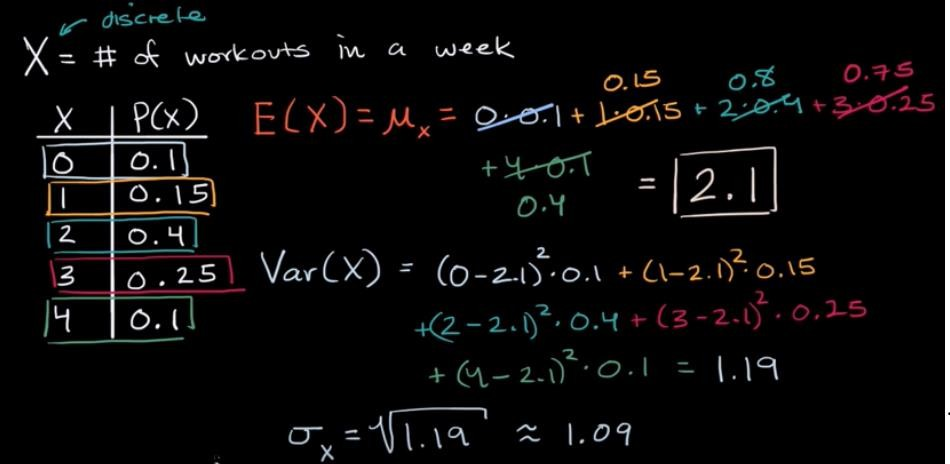 discrete
X = # of workouts in a week
X P(X)
0 0.1
1 0.15
2 0.4
3 0.25
4 0.1
0.15 0.8 0.75
E(X) = μₓ = 0·0.1 + 1·0.15 + 2·0.4 + 3·0.25
+ 4·0.1
0.4
= 2.1
Var(X) = (0-2.1)²·0.1 + (1-2.1)²·0.15
+(2-2.1)²·0.4 + (3-2.1)²·0.25
+ (4-2.1)²·0.1 = 1.19
σₓ = √1.19 ≈ 1.09